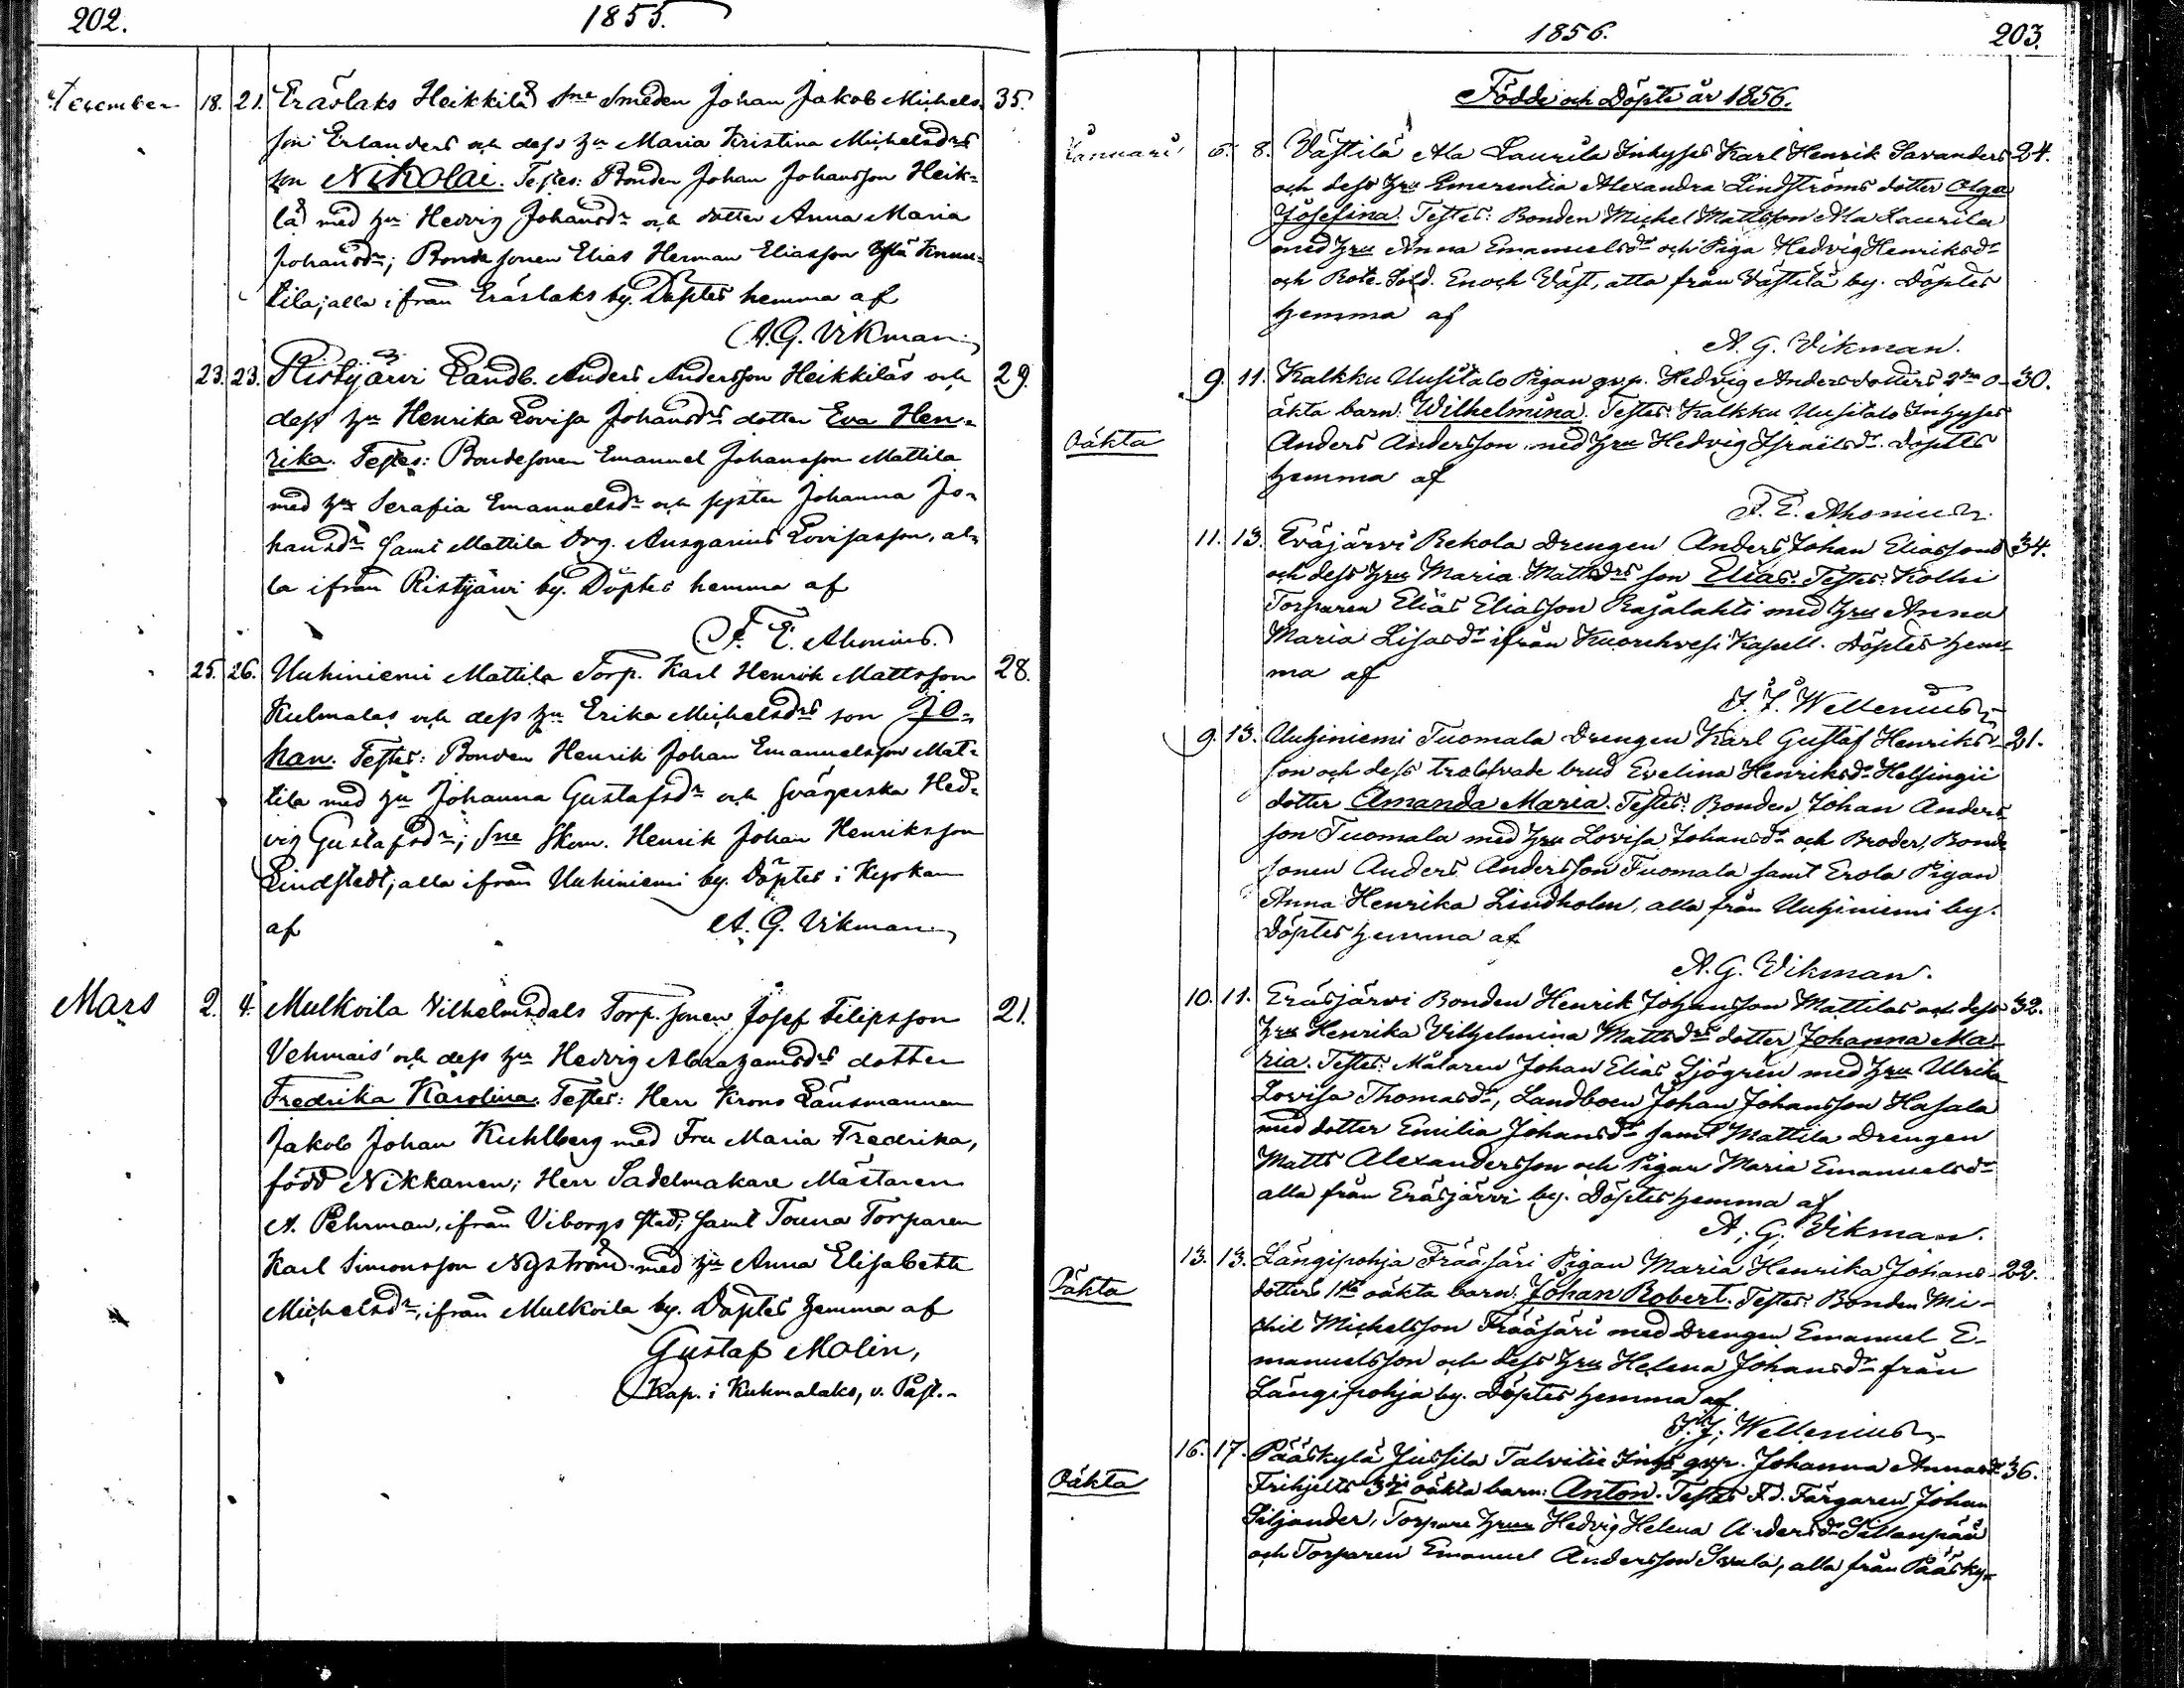 202. 1855.
December 18. 21. Eräslaks Heikkilä Sne Smeden Johan Jakob Michels- 35.
son Erlanders och dess hu Maria Kristina Michelsdrs
son Nikolai. Testes: Bonden Johan Johansson Heik-
lä med hu Hedvig Johansdr och dotter Anna Maria
Johansdr; Bonde sonen Elias Herman Eliasson Knuu-
tila; alla ifrån Eräslaks by. Döptes hemma af
A. G. Vikman
23. 23. Ristijärvi Landb. Anders Andersson Heikkiläs och 29.
dess hu Henrika Lovisa Johansdrs dotter Eva Hen-
rika. Testes: Bondesonen Emanuel Johansson Mattila
med hu Serafia Emanuelsdr och syster Johanna Jo-
hansdr samt Mattila Drg. Ansgarius Lovisasson, al-
la ifrån Ristijärvi by. Döptes hemma af
F. E. Ahonius.
25. 26. Uuhiniemi Mattila Torp. Karl Henrik Mattsson 28.
Kulmalas och dess hu Erika Michelsdrs son Jo-
han. Testes: Bonden Henrik Johan Emanuelsson Mat-
tila med hu Johanna Gustafsdr och svägerska Hed-
vig Gustafsdr; Sne Skom. Henrik Johan Henriksson
Lindstedt; alla ifrån Uuhiniemi by. Döptes i Kyrkan
af A. G. Vikman
Mars 2. 4. Mulkoila Vilhelmsdals Torp. sonen Josef Filipsson 21.
Vehmais' och dess hu Hedvig Abrahamsdrs dotter
Fredrika Karolina. Testes: Herr Krono Länsmannen
Jakob Johan Kuhlberg med Fru Maria Fredrika,
född Nikkanen; Herr Sadelmakare Mästaren
A. Pehrman, ifrån Viborgs stad; samt Torparen
Karl Simonsson Nyström med hu Anna Elisabeth
Michelsdr, ifrån Mulkoila by. Döptes hemma af
Gustaf Molin,
Kap. i Kuhmalaks, v. Past.
1856. 203.
Födde och Döpte år 1856.
Januari 6. 8. Västilä Ala Laurila Inhyses Karl Henrik Savanders 24.
och dess hru Emerentia Alexandra Lindströms dotter Olga
Josefina. Testes: Bonden Michel Mattsson Ala Laurila
med hru Anna Emanuelsdr och Piga Hedvig Henriksdr
och Rote-Sold. Enoch Väst, alla från Västilä by. Döptes
hemma af
A. G. Vikman.
9. 11. Kalkku Uusitalo Pigan qvp. Hedvig Andersdotters 2dra o- 30.
äkta barn: Wilhelmina. Testes: Kalkku Uusitalo Inhyses
Oäkta Anders Andersson med hru Hedvig Israelsdr. Döptes
hemma af
F. E. Ahonius.
11. 13. Eväjärvi Rekola Drengen Anders Johan Eliassons 34.
och dess hru Maria Mattsdrs son Elias. Testes: Kolhi
Torparen Elias Eliasson Rajalahti med hru Anna
Maria Lisasdr ifrån Kuorehvesi Kapell. Döptes hem-
ma af
J. J. Wellenius
9. 13. Uuhiniemi Tuomala Drengen Karl Gustaf Henriks- 21.
son och dess trolofvade brud Evelina Henriksdr Helsingii
dotter Amanda Maria. Testes: Bonden Johan Anders-
son Tuomala med hru Lovisa Johansdr och Broder, Bonde
sonen Anders Andersson Tuomala samt Erola Pigan
Anna Henrika Lindholm, alla från Uuhiniemi by.
Döptes hemma af
A. G. Vikman.
10. 11. Eräsjärvi Bonden Henrik Johansson Mattilas och dess 32.
hru Henrika Vilhelmina Mattsdrs dotter Johanna Ma-
ria. Testes: Målaren Johan Elias Sjögren med hru Ulrika
Lovisa Thomasdr, Landboen Johan Johansson Hasala
med dotter Emilia Johansdr samt Mattila Drengen
Matts Alexandersson och Pigan Maria Emanuelsdr
alla från Eräsjärvi by. Döptes hemma af
A. G. Vikman.
13. 13. Längipohja Fräsäri Pigan Maria Henrika Johans- 22.
Oäkta dotters 1sta oäkta barn: Johan Robert. Testes: Bonden Mi-
chil Michelsson Fräsäri med Drengen Emanuel E-
manuelsson och dess hru Helena Johansdr från
Längipohja by. Döptes hemma af
J. J. Wellenius
16. 17. Pääskylä Jussila Talvitie Inhs qvp. Johanna Annasdr 36.
Oäkta Frihjelts 3dje oäkta barn: Anton. Testes F.d. Färgaren Johan
Siljander, Torpare hrun Hedvig Helena Andersdr Sillanpää
och Torparen Emanuel Andersson Svala, alla från Pääsky-